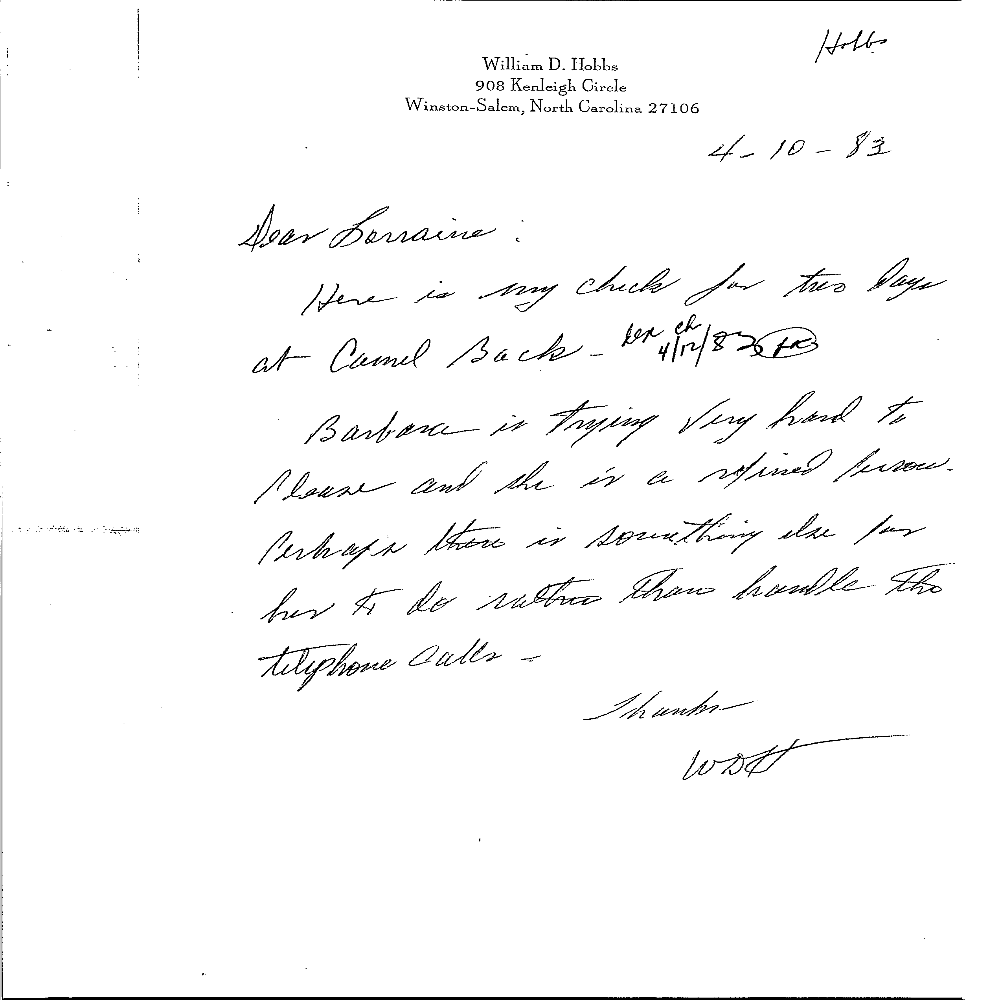 Hobbs
William D. Hobbs
908 Kenleigh Circle
Winston-Salem, North Carolina 27106
4-10-83
Dear Lorraine:
Here is my check for two days
at Camel Back - ck
4/12/83
Barbara is trying very hard to
please and she is a refined person.
Perhaps there is something else for
her to do rather than handle the
telephone calls -
Thanks
WDH